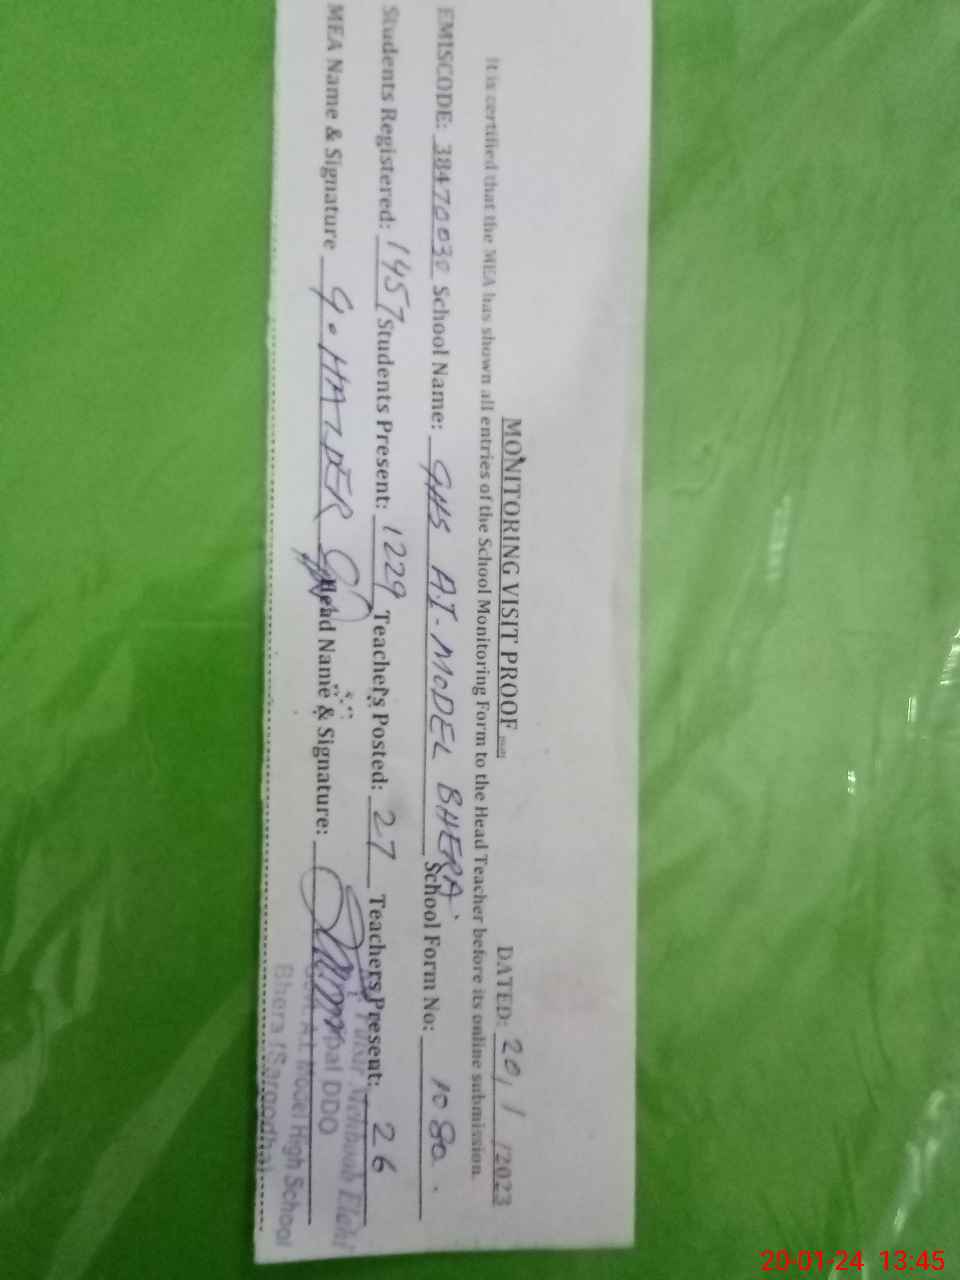 MONITORING VISIT PROOF DATED: 20, 1 /2023
It is certified that the MEA has shown all entries of the School Monitoring Form to the Head Teacher before its online submission.
EMISCODE: 38470030 School Name: GHS A.I-MODEL BHERA School Form No: 1080.
Students Registered: 1457 Students Present: 1229 Teachers Posted: 27 Teachers Present: 26
MEA Name & Signature G.HAIDER Head Name & Signature:
Mehboob Elahi
Principal DDO
Govt. A.I. Model High School
Bhera (Sargodha)
20-01-24 13:45